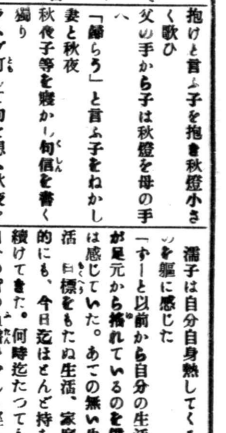 抱けと言ふ子を抱き秋燈小さ
く歌ひ
父の手から子は秋燈を母の手
へ
「歸らう」と言ふ子をねかし
妻と秋夜
秋夜子等を寢かし句信を書く
獨り
濡子は自分自身熱してくる
を軀に感じた
「ずーと以前から自分の生活
が足元から揺れているのを
は感じていた。あての無い
活 目標をもたぬ生活、家
的にも、今日迄ほとんど持
續けてきた。何時迄たつても